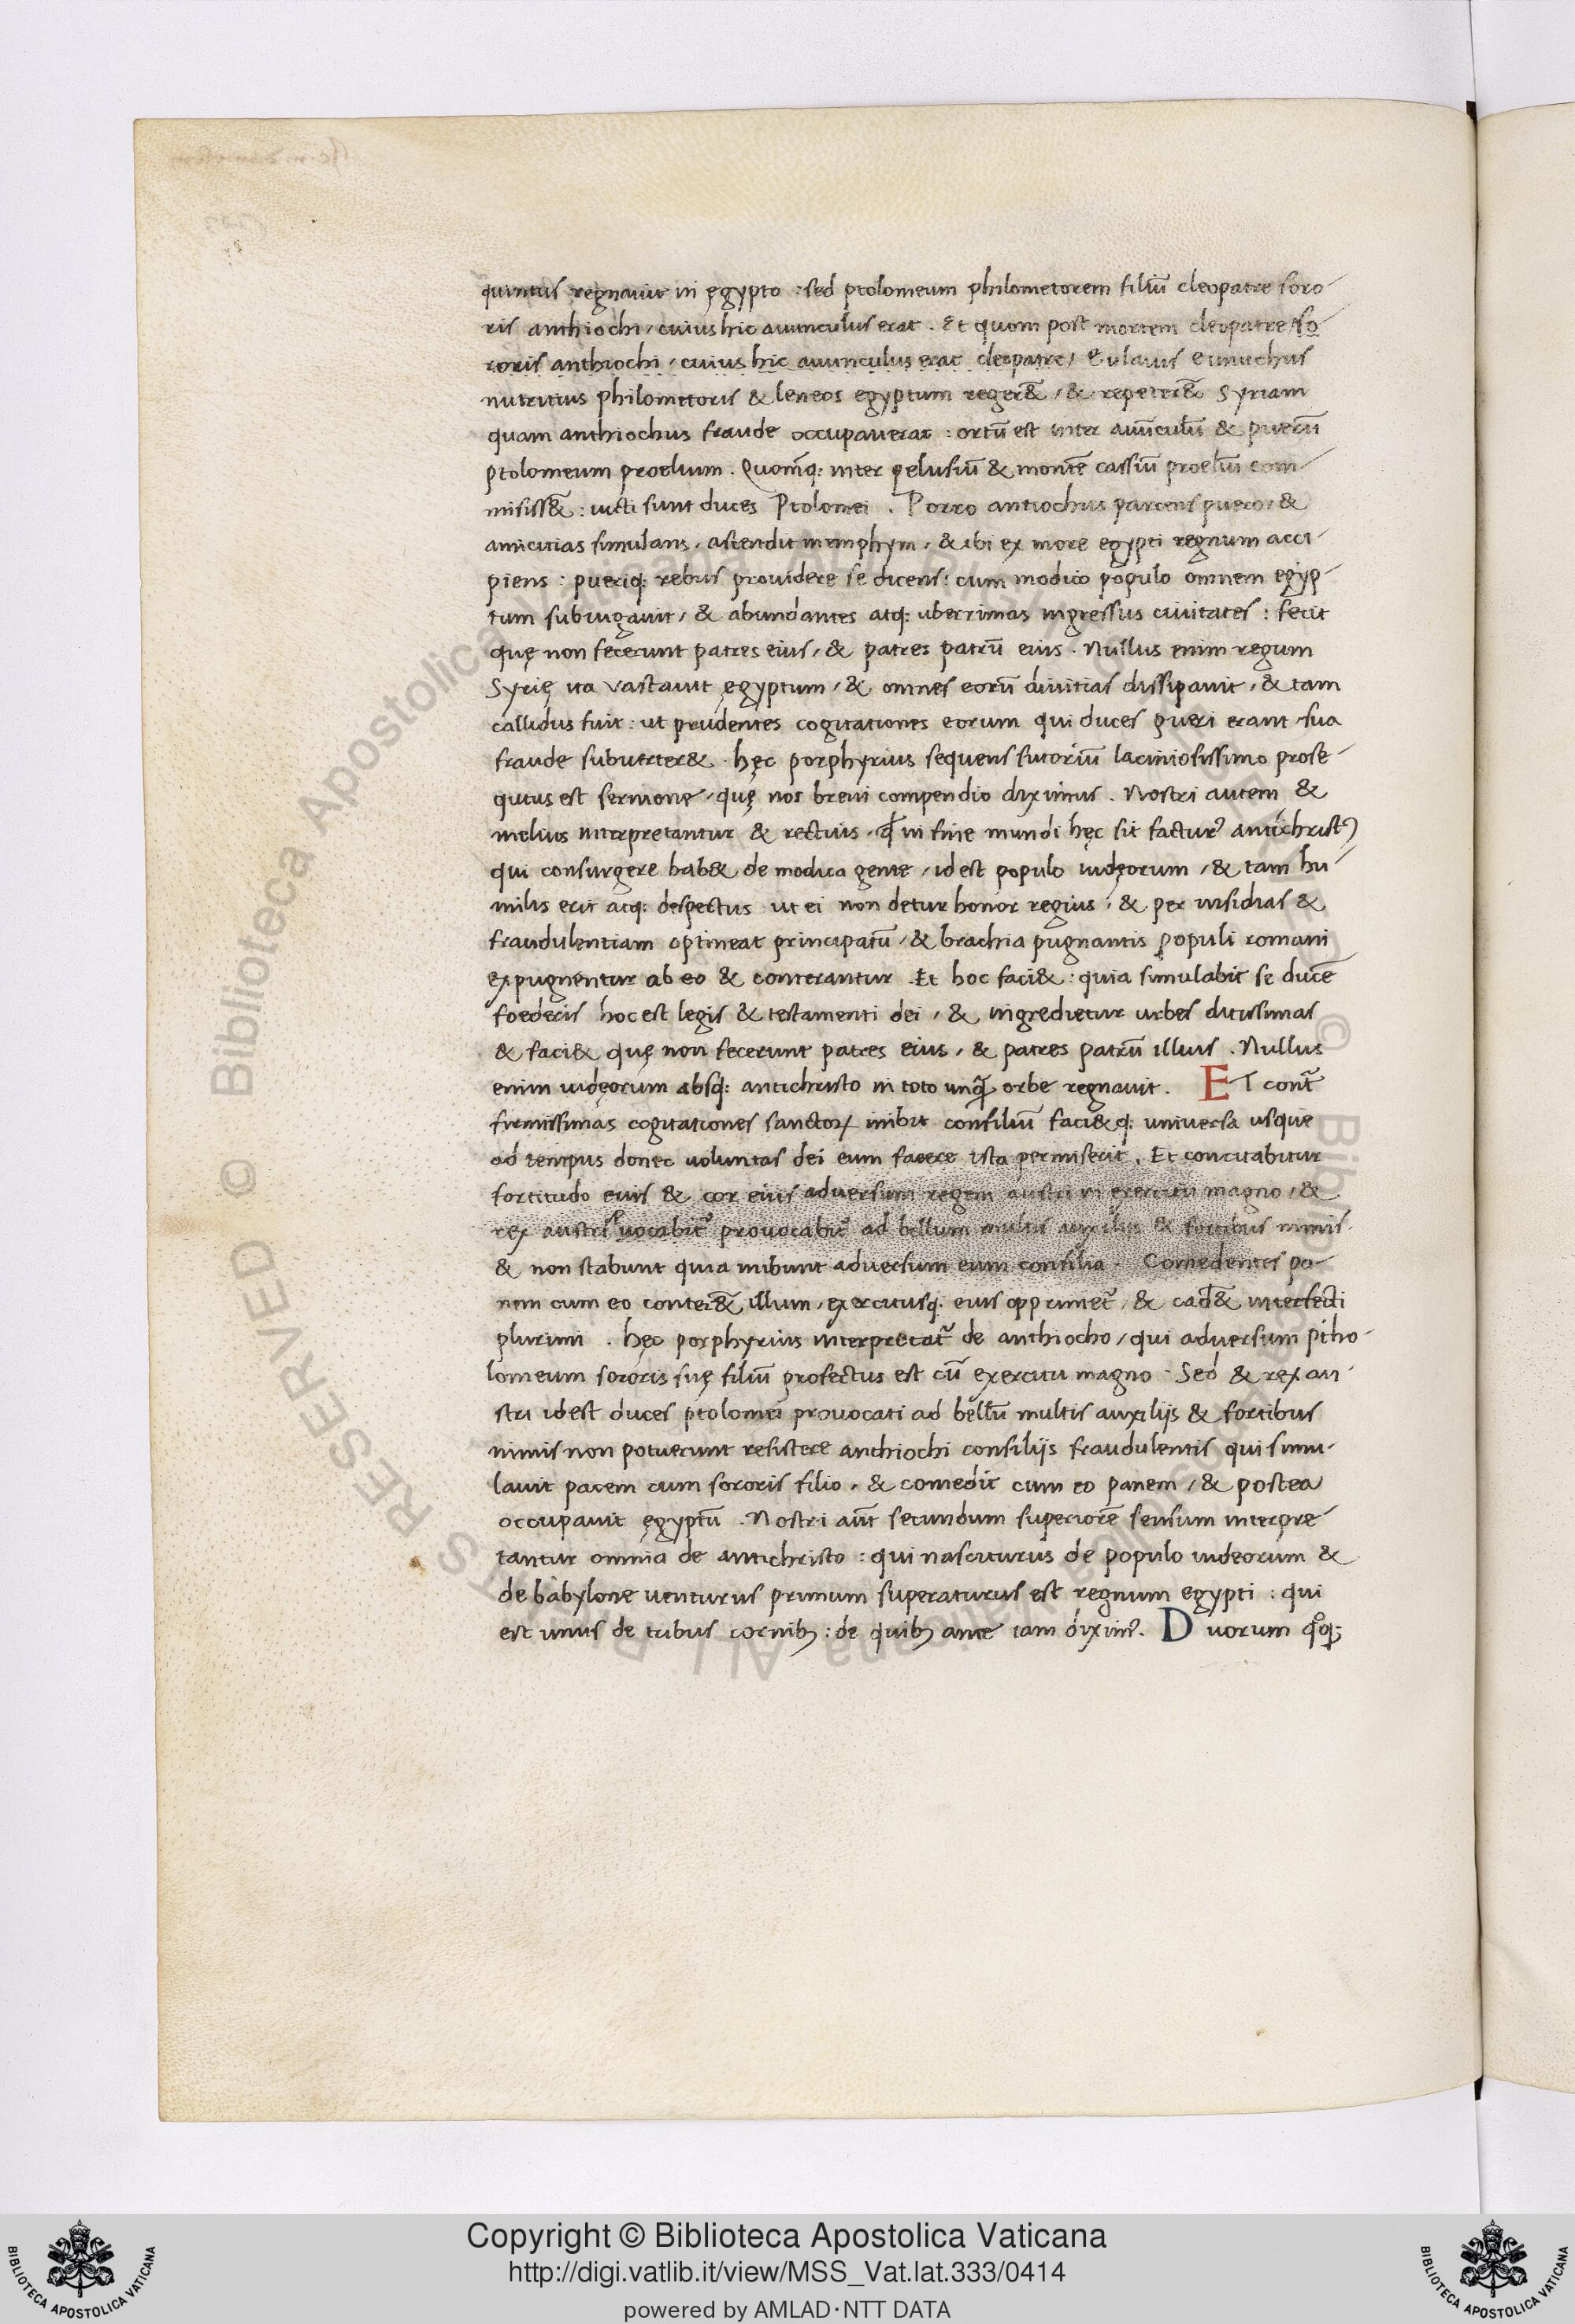 quintus regnauit in ęgypto : sed ptolomeum philometorem filiū cleopatre soro-
ris anthiochi, cuius hic auunculus erat . Et quom post mortem cleopatre so
roris anthiochi, cuius hic auunculus erat cleopatre, Eulaius eunuchus
nutritius philometoris & leneos egyptum reger&̄, & repeter&̄ Syriam
quam anthiochus fraude occupauerat : ortū est inter auūculū & puerū
ptolomeum proelium . Quomq: inter pelusiū & montē cassiū proeliū com-
misiss&̄ : uicti sunt duces Ptolomei . Porro antiochus parcens puero, &
amicitias simulans, ascendit memphym, & ibi ex more egypti regnum acci-
piens : pueriq: rebus prouidere se dicens : cum modico populo omnem egyp-
tum subiugauit, & abundantes atq: uberrimas ingressus ciuitates : fecit
quę non fecerunt patres eius, & patres patrū eius . Nullus enim regum
Syrię ita vastauit ęgyptum, & omnes eorū diuitias dissipauit, & tam
callidus fuit : ut prudentes cogitationes eorum qui duces pueri erant sua
fraude subuerter& . hęc porphyrius sequens sutoriū laciniosissimo prose-
qutus est sermone, quę nos breui compendio diximus . Nostri autem &
melius interpretantur & rectius, ꝙ in fine mundi hęc sit factur᾿ antichrist᾿
qui consurgere hab& de modica gente, id est populo iudęorum, & tam hu-
milis erit atq: despectus ut ei non detur honor regius, & per insidias &
fraudulentiam optineat principatū, & brachia pugnantis populi romani
expugnentur ab eo & conterantur . Et hoc faci& : quia simulabit se ducē
foederis hoc est legis & testamenti dei, & ingredietur urbes ditissimas
& faci& quę non fecerunt patres eius, & patres patrū illius . Nullus
enim iudęorum absq: antichristo in toto unq̃ orbe regnauit . ET cont̄
firmissimas cogitationes sanctoꝝ inibit consiliū faci&q: universa usque
ad tempus donec uoluntas dei eum facere ista permiserit . Et concitabitur
fortitudo eius & cor eius adversum regem austri in exercitu magno, &
rex austri uocabit᾿ prouocabit᾿ ad bellum multis auxiliis & fortibus nimis
& non stabunt quia inibunt adversum eum consilia . Comedentes pa-
nem cum eo conter&̄ illum, exercitusq. eius opprimet᾿, & cad&̄ interfecti
plurimi . hęc porphyrius interpretat᾿ de anthiocho, qui adversum ptho-
lomeum sororis suę filiū profectus est cū exercitu magno . Sed & rex au-
stri id est duces ptolomei prouocati ad bellū multis auxilijs & fortibus
nimis non potuerunt resistere anthiochi consilijs fraudulentis qui simu-
lauit pacem cum sororis filio, & comedit cum eo panem, & postea
occupauit ęgyptū . Nostri aūt secundum superiorē sensum interpre
tantur omnia de antichristo : qui nasciturus de populo iudeorum &
de babylone uenturus primum superaturus est regnum egypti : qui
est unus de tribus cornibꝫ : de quibꝫ ante iam dixim᾿. Duorum qͦq;
Copyright © Biblioteca Apostolica Vaticana
http://digi.vatlib.it/view/MSS_Vat.lat.333/0414
powered by AMLAD·NTT DATA
BIBLIOTECA APOSTOLICA VATICANA
BIBLIOTECA APOSTOLICA VATICANA